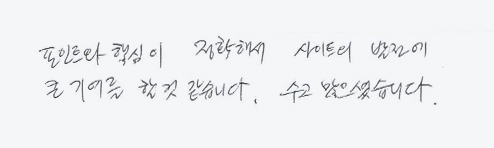 포인트와 핵심이 정확해서 사이트의 발전에
큰 기여를 할 것 같습니다. 수고 많으셨습니다.